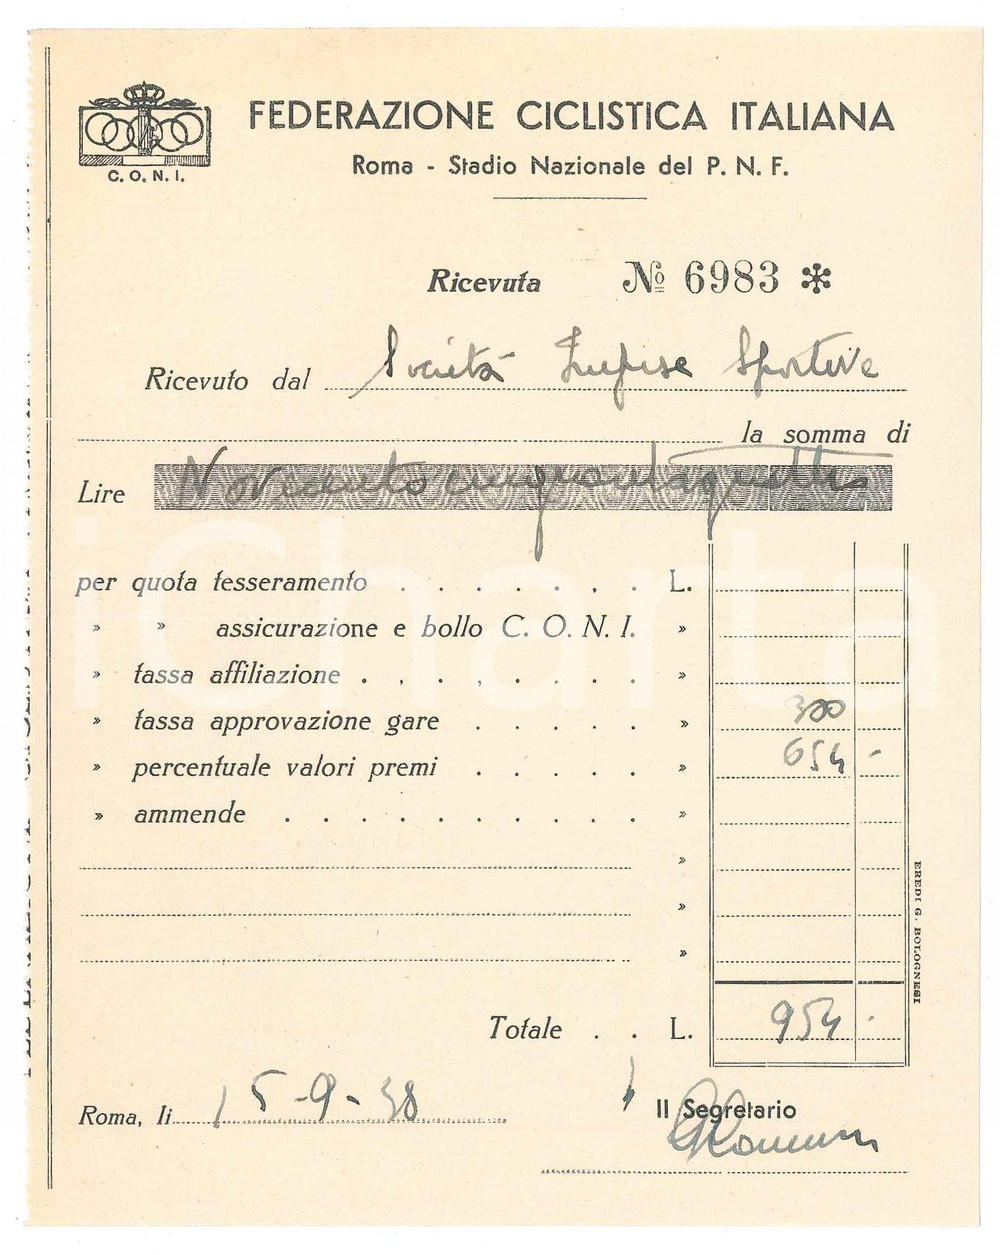 FEDERAZIONE CICLISTICA ITALIANA
C. O. N. I.
Roma - Stadio Nazionale del P. N. F.
Ricevuta № 6983 *
Ricevuto dal Società Imprese Sportive
la somma di
Lire Novecentocinquantaquattro
per quota tesseramento . . . . . . . L.
» » assicurazione e bollo C. O. N. I. »
» tassa affiliazione . . . . . . . »
» tassa approvazione gare . . . . . » 300
» percentuale valori premi . . . . . » 654 -
» ammende . . . . . . . . . . »
»
»
»
EREDI G. BOLOGNESI
Totale . . L. 954 -
Roma, li 15-9-38
Il Segretario
iCharta